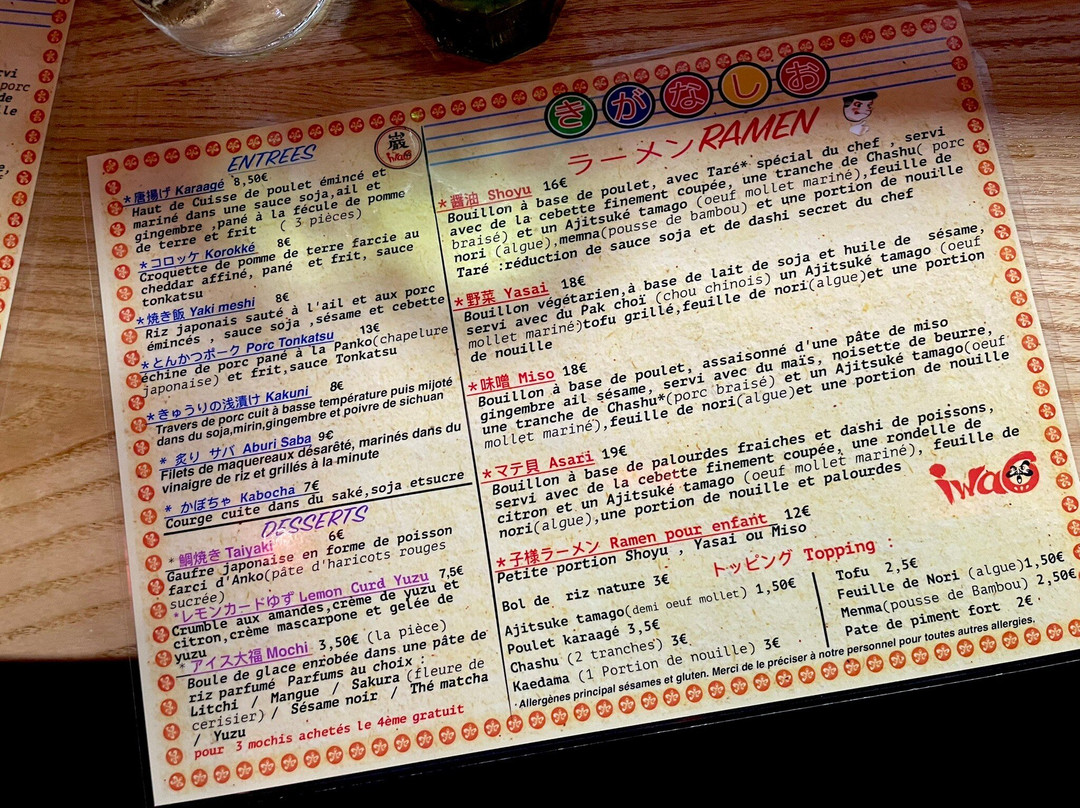 ENTREES
巌
iwaG
*唐揚げ Karaagé 8,50€
Haut de Cuisse de poulet émincé et
mariné dans une sauce soja,ail et
gingembre ,pané à la fécule de pomme
de terre et frit ( 3 pièces)
*コロッケ Korokké 8€
Croquette de pomme de terre farcie au
cheddar affiné, pané et frit, sauce
tonkatsu
*焼き飯 Yaki meshi 8€
Riz japonais sauté à l'ail et aux porc
émincés , sauce soja ,sésame et cebette
*とんかつポーク Porc Tonkatsu 13€
échine de porc pané à la Panko(chapelure
japonaise) et frit,sauce Tonkatsu
*きゅうりの浅漬け Kakuni 8€
Travers de porc cuit à basse température puis mijoté
dans du soja,mirin,gingembre et poivre de sichuan
*炙り サバ Aburi Saba 9€
Filets de maquereaux désarêté, marinés dans du
vinaigre de riz et grillés à la minute
* かぼちゃ Kabocha 7€
Courge cuite dans du saké,soja etsucre
DESSERTS
*鯛焼き Taiyaki 6€
Gaufre japonaise en forme de poisson
farci d'Anko(pâte d'haricots rouges
sucrée)
*レモンカードゆず Lemon Curd Yuzu 7,5€
Crumble aux amandes,crème de yuzu et
citron,crème mascarpone et gelée de
yuzu
*アイス大福 Mochi 3,50€ (la pièce)
Boule de glace enrobée dans une pâte de
riz parfumé Parfums au choix :
Litchi / Mangue / Sakura (fleure de
cerisier) / Sésame noir / Thé matcha
/ Yuzu
pour 3 mochis achetés le 4ème gratuit
きがなしお
ラーメンRAMEN
*醤油 Shoyu 16€
Bouillon à base de poulet, avec Taré* spécial du chef , servi
avec de la cebette finement coupée, une tranche de Chashu( porc
braisé) et un Ajitsuké tamago (oeuf mollet mariné),feuille de
nori (algue),memna(pousse de bambou) et une portion de nouille
Taré :réduction de sauce soja et de dashi secret du chef
*野菜 Yasai 18€
Bouillon végétarien,à base de lait de soja et huile de sésame,
servi avec du Pak choï (chou chinois) un Ajitsuké tamago (oeuf
mollet mariné)tofu grillé,feuille de nori(algue)et une portion
de nouille
*味噌 Miso 18€
Bouillon à base de poulet, assaisonné d'une pâte de miso
gingembre ail sésame, servi avec du maïs, noisette de beurre,
une tranche de Chashu*(porc braisé) et un Ajitsuké tamago(oeuf
mollet mariné),feuille de nori(algue)et une portion de nouille
*マテ貝 Asari 19€
Bouillon à base de palourdes fraiches et dashi de poissons,
servi avec de la cebette finement coupée, une rondelle de
citron et un Ajitsuké tamago (oeuf mollet mariné), feuille de
nori(algue),une portion de nouille et palourdes
iwaG
*子様ラーメン Ramen pour enfant 12€
Petite portion Shoyu , Yasai ou Miso
トッピング Topping :
Bol de riz nature 3€
Ajitsuke tamago(demi oeuf mollet) 1,50€
Poulet karaagé 3,5€
Chashu (2 tranches) 3€
Kaedama (1 Portion de nouille) 3€
Tofu 2,5€
Feuille de Nori (algue)1,50€
Menma(pousse de Bambou) 2,50€
Pate de piment fort 2€
·Allergènes principal sésames et gluten. Merci de le préciser à notre personnel pour toutes autres allergies.